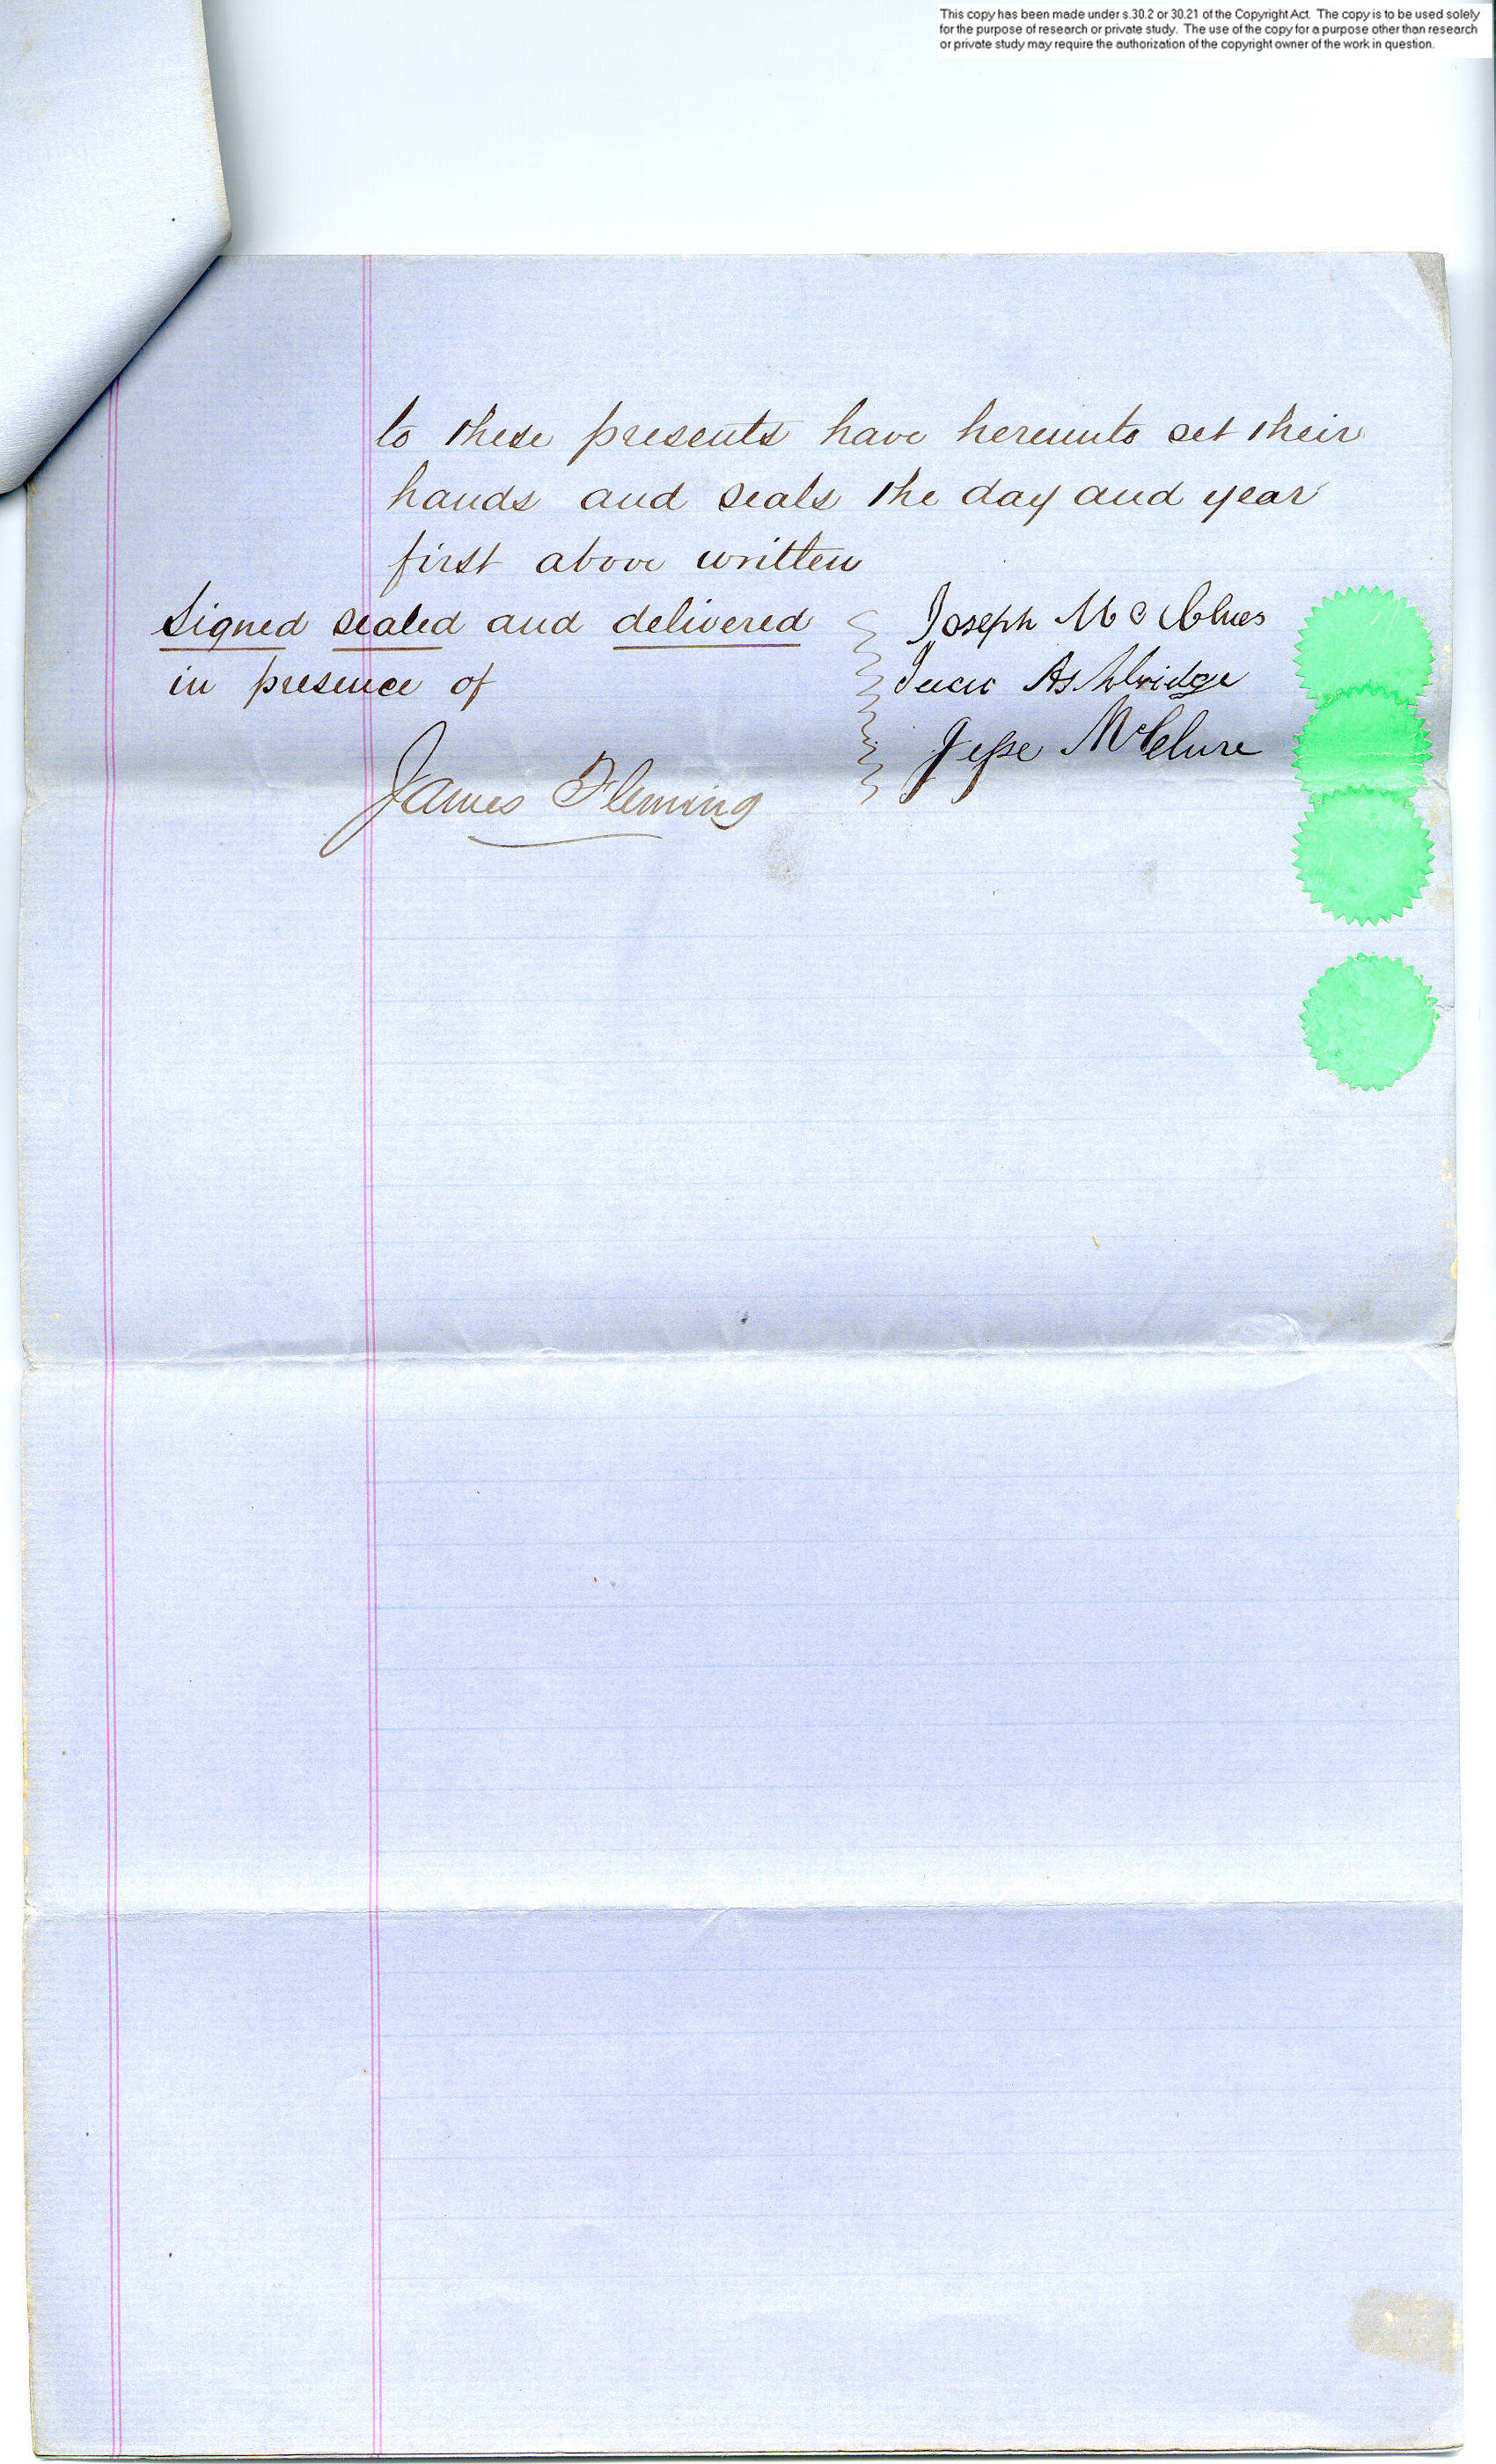 This copy has been made under s.30.2 or 30.21 of the Copyright Act. The copy is to be used solely
for the purpose of research or private study. The use of the copy for a purpose other than research
or private study may require the authorization of the copyright owner of the work in question.
to these presents have hereunto set their
hands and seals the day and year
first above written
Signed sealed and delivered
in presence of
James Fleming
Joseph
Ashbridge
Jesse McClure